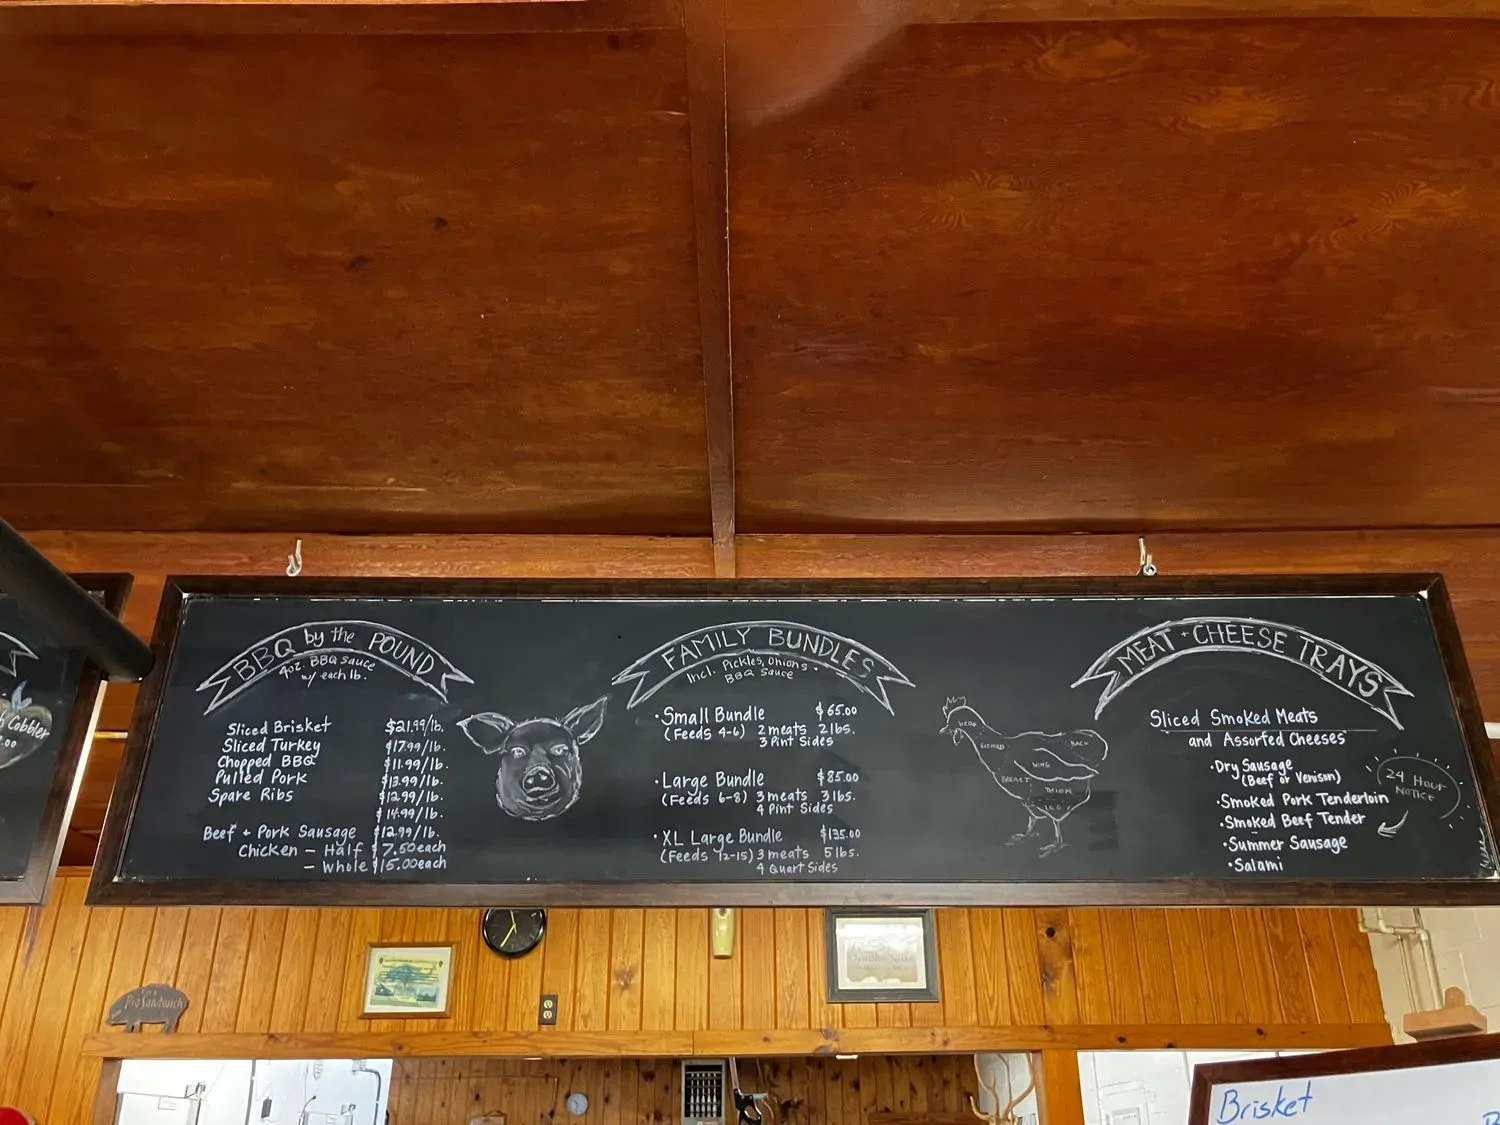 h Cobbler
.00
BBQ by the POUND
4oz. BBQ sauce
w/ each lb.
Sliced Brisket $21.99/lb.
Sliced Turkey $17.99/lb.
Chopped BBQ $11.99/lb.
Pulled Pork $13.99/lb.
Spare Ribs $12.99/lb.
$14.99/lb.
Beef + Pork Sausage $12.99/lb.
Chicken - Half $7.50each
- Whole $15.00each
FAMILY BUNDLES
Incl. Pickles, Onions +
BBQ Sauce
• Small Bundle $65.00
(Feeds 4-6) 2 meats 2 lbs.
3 Pint Sides
• Large Bundle $85.00
(Feeds 6-8) 3 meats 3 lbs.
4 Pint Sides
• XL Large Bundle $135.00
(Feeds 12-15) 3 meats 5 lbs.
4 Quart Sides
HEAD
GIZZARD
BACK
WING
BREAST
THIGH
LEG
MEAT + CHEESE TRAYS
Sliced Smoked Meats
and Assorted Cheeses
• Dry Sausage
(Beef or Venison)
• Smoked Pork Tenderloin
• Smoked Beef Tender
• Summer Sausage
• Salami
24 Hour
NOTICE
Pig Sandwich
Brisket